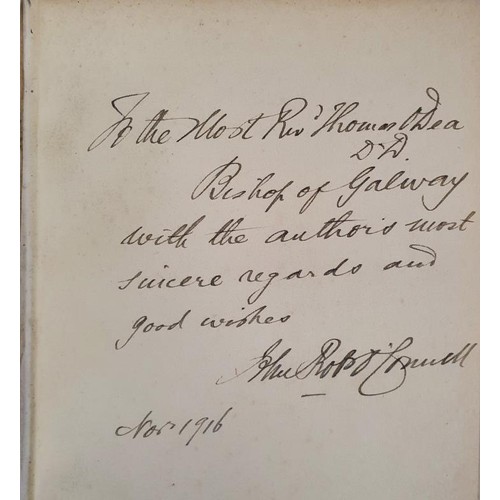 To the Most Revd Thomas O'Dea
D.D.
Bishop of Galway
with the author's most
sincere regards and
good wishes
John Robt O'Connell
Nov. 1916